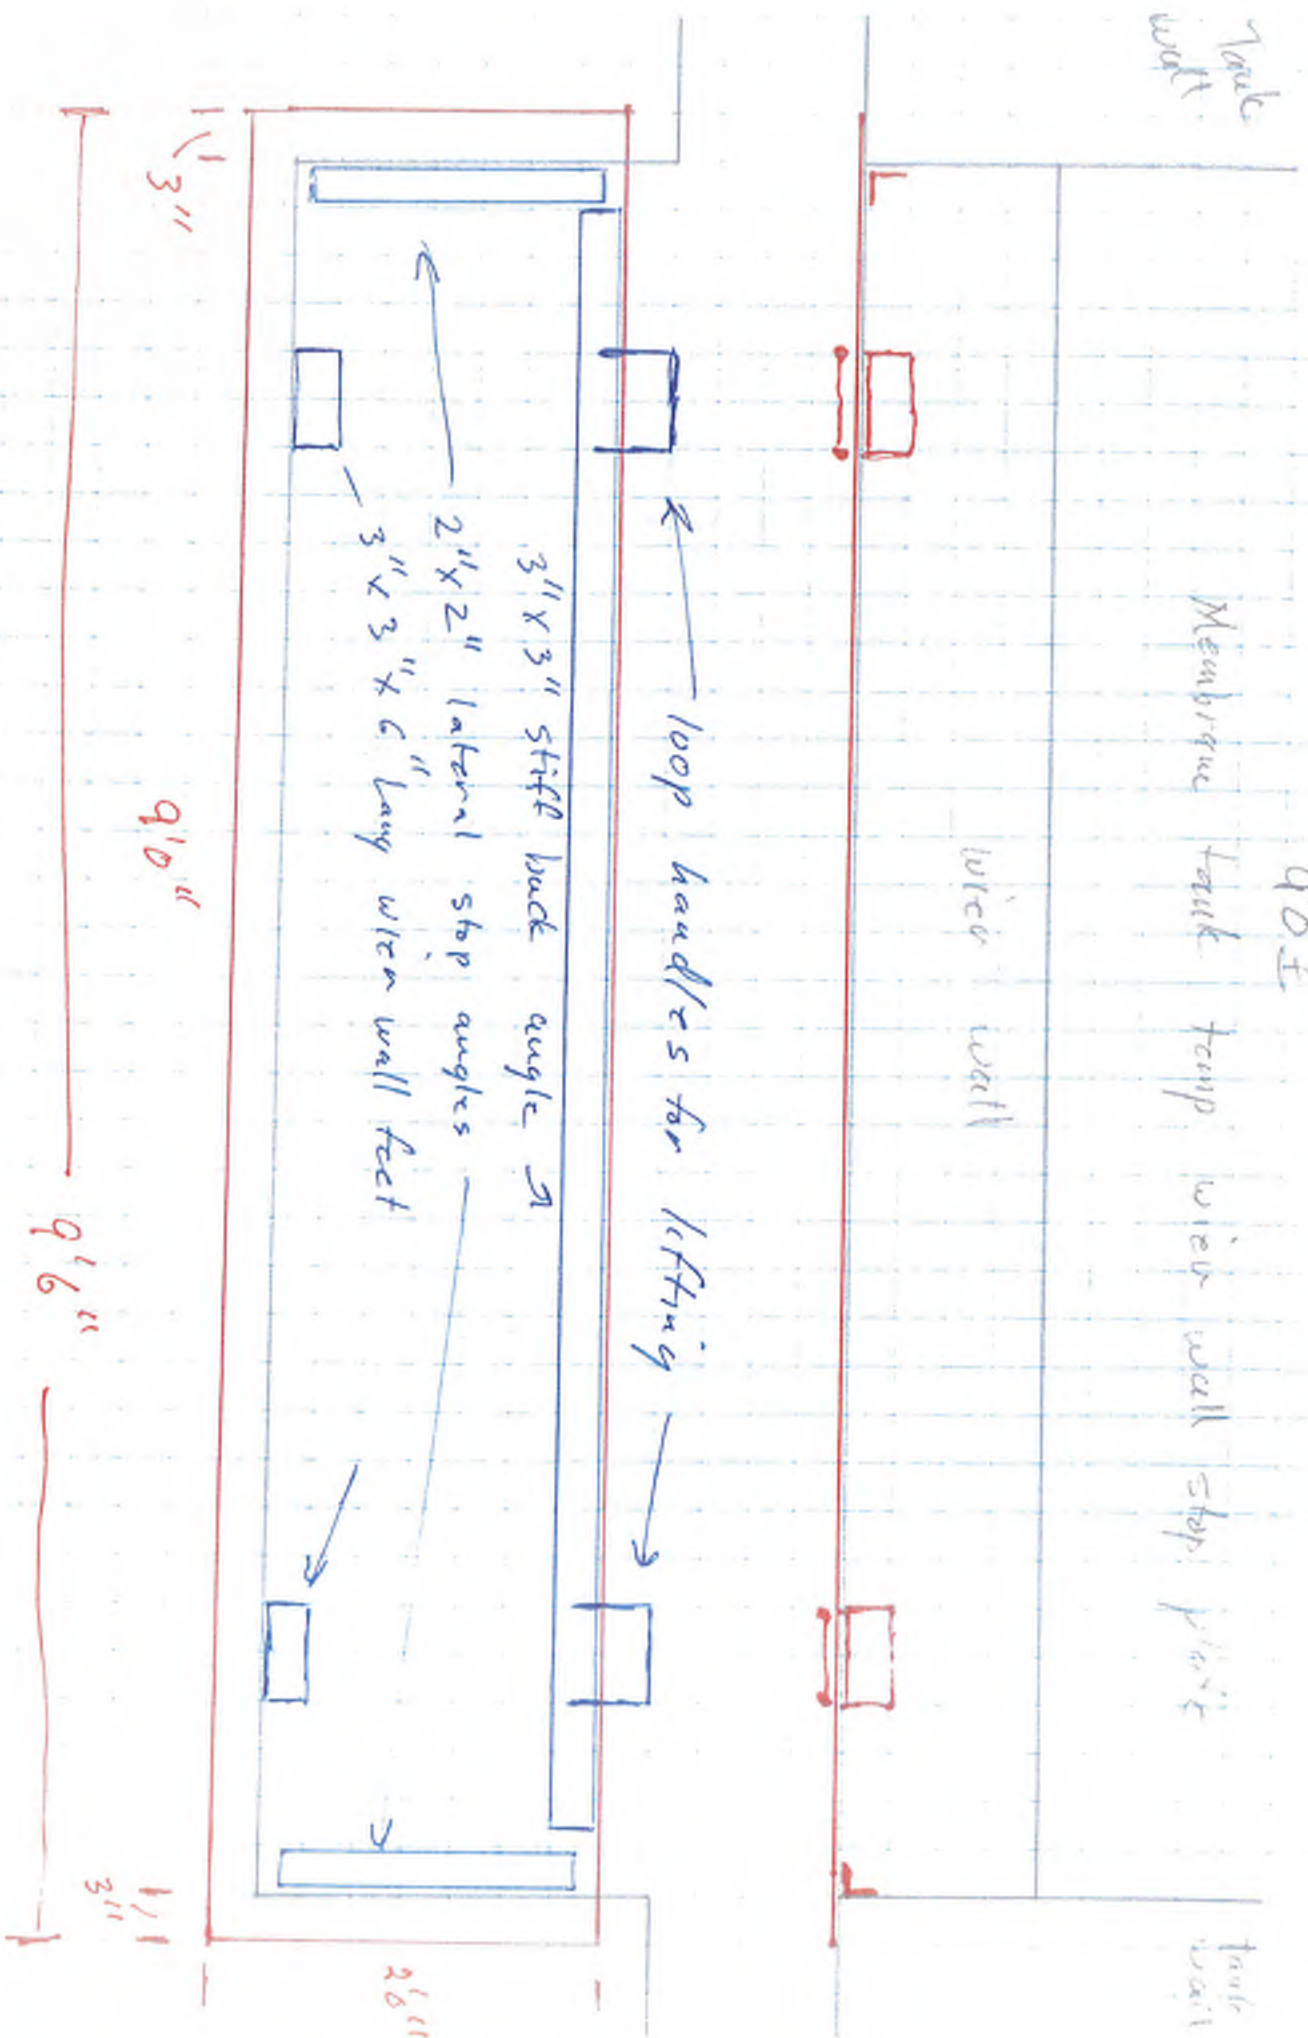 9'0 ±
Tank
wall
Membrane tank temp wier wall stop plate
tank
wall
wier wall
loop handles for lifting
3" x 3" stiff back angle
2" x 2" lateral stop angles
3" x 3" x 6" long wier wall feet
3"
9'0"
3"
9'6"